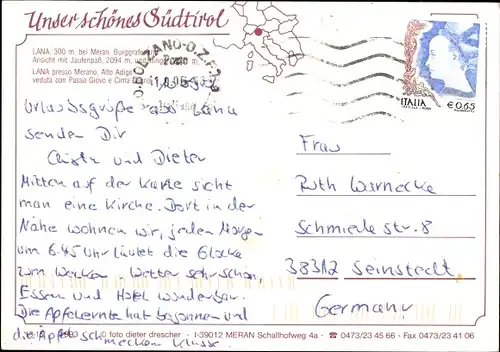 Unser schönes Südtirol
LANA, 300 m, bei Meran, Burggrafenamt
Ansicht mit Jaufenpaß, 2094 m, und
LANA presso Merano, Alto Adige
veduta con Passo Giovo e Cima
BOLZANO
ITALIA
€ 0,65
Liebe
Urlaubsgrüße aus Lana
senden Dir
Christa und Dieter
Mitten auf der Karte sieht
man eine Kirche. Dort in der
Nähe wohnen wir, jeden Morgen
um 6.45 Uhr läutet die Glocke
zum Wecken. Wetter sehr schön,
Essen und Hotel wunderbar.
Die Apfelernte hat begonnen und
die Äpfel schmecken Klasse.
Frau
Ruth Warnecke
Schmiedestr. 8
38312 Seinstedt
Germany
© foto dieter drescher - I-39012 MERAN Schallhofweg 4a - ☎ 0473/23 45 66 - Fax 0473/23 41 06